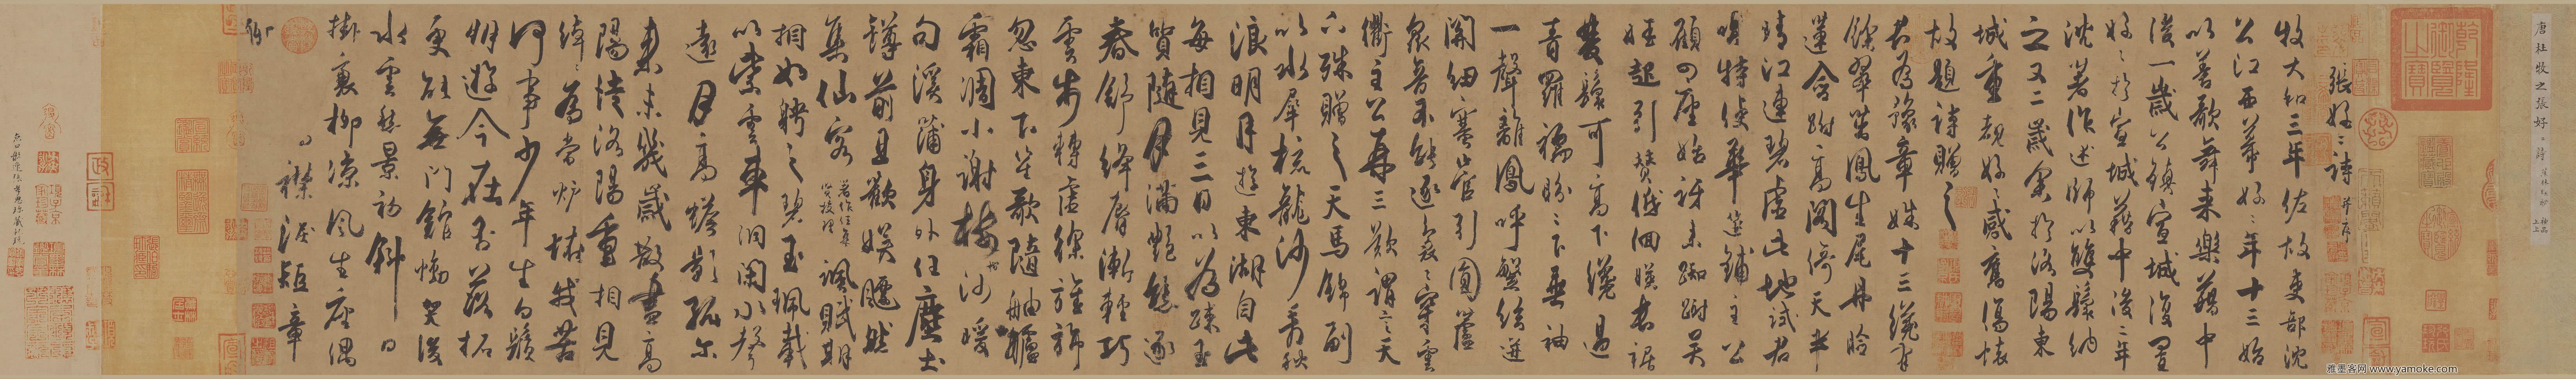 唐杜牧之張好〻詩
神品
上上
乾隆御覽之寶
張好〻詩 并序
牧大和三年佐故吏部沈
公江西幕好〻年十三始
以善歌舞來樂籍中
後一歲公鎮宣城復置
好〻於宣城籍中後二年
沈著作述師以雙鬟納
之又二歲余於洛陽東
城重覩好〻感舊傷懷
故題詩贈之
君為豫章姝十三纔有
餘翠茁鳳生尾丹臉
蓮含跗高閣倚天半
晴江連碧虛此地試君
唱特使華筵鋪主公
顧四座始訝來踟躕吳
娃起引贊低佪暎長裾
雙鬟可高下纔過
青羅襦盼〻下垂袖
一聲離鳳呼繁絃迸
關紐塞管引圓蘆
衆音不能逐裊〻穿雲
衢主公再三歎謂言天
下殊贈之天馬錦副
以水犀梳龍沙看秋
浪明月遊東湖自此
每相見三日以為疎玉
質隨月滿艷態逐
春舒絳脣漸輕巧
雲步轉虛徐旌旆
忽東下笙歌隨舳艫
霜凋小謝樹沙暖
句溪蒲身外任塵土
罇前且歡娛飄然
集仙客著作任集賢校理諷賦期
相如聘之碧玉珮載
以紫雲車洞閑水聲
遠月高蟾影孤尔
來未幾歲散盡高
陽徒洛陽重相見
綽〻為當壚怪我苦
何事少年生白鬚
朋遊今在否落拓
更能無門館慟哭後
水雲愁景初斜日
掛衰柳涼風生座偶
襟淚短章
聊
雅墨客网 www.yamoke.com